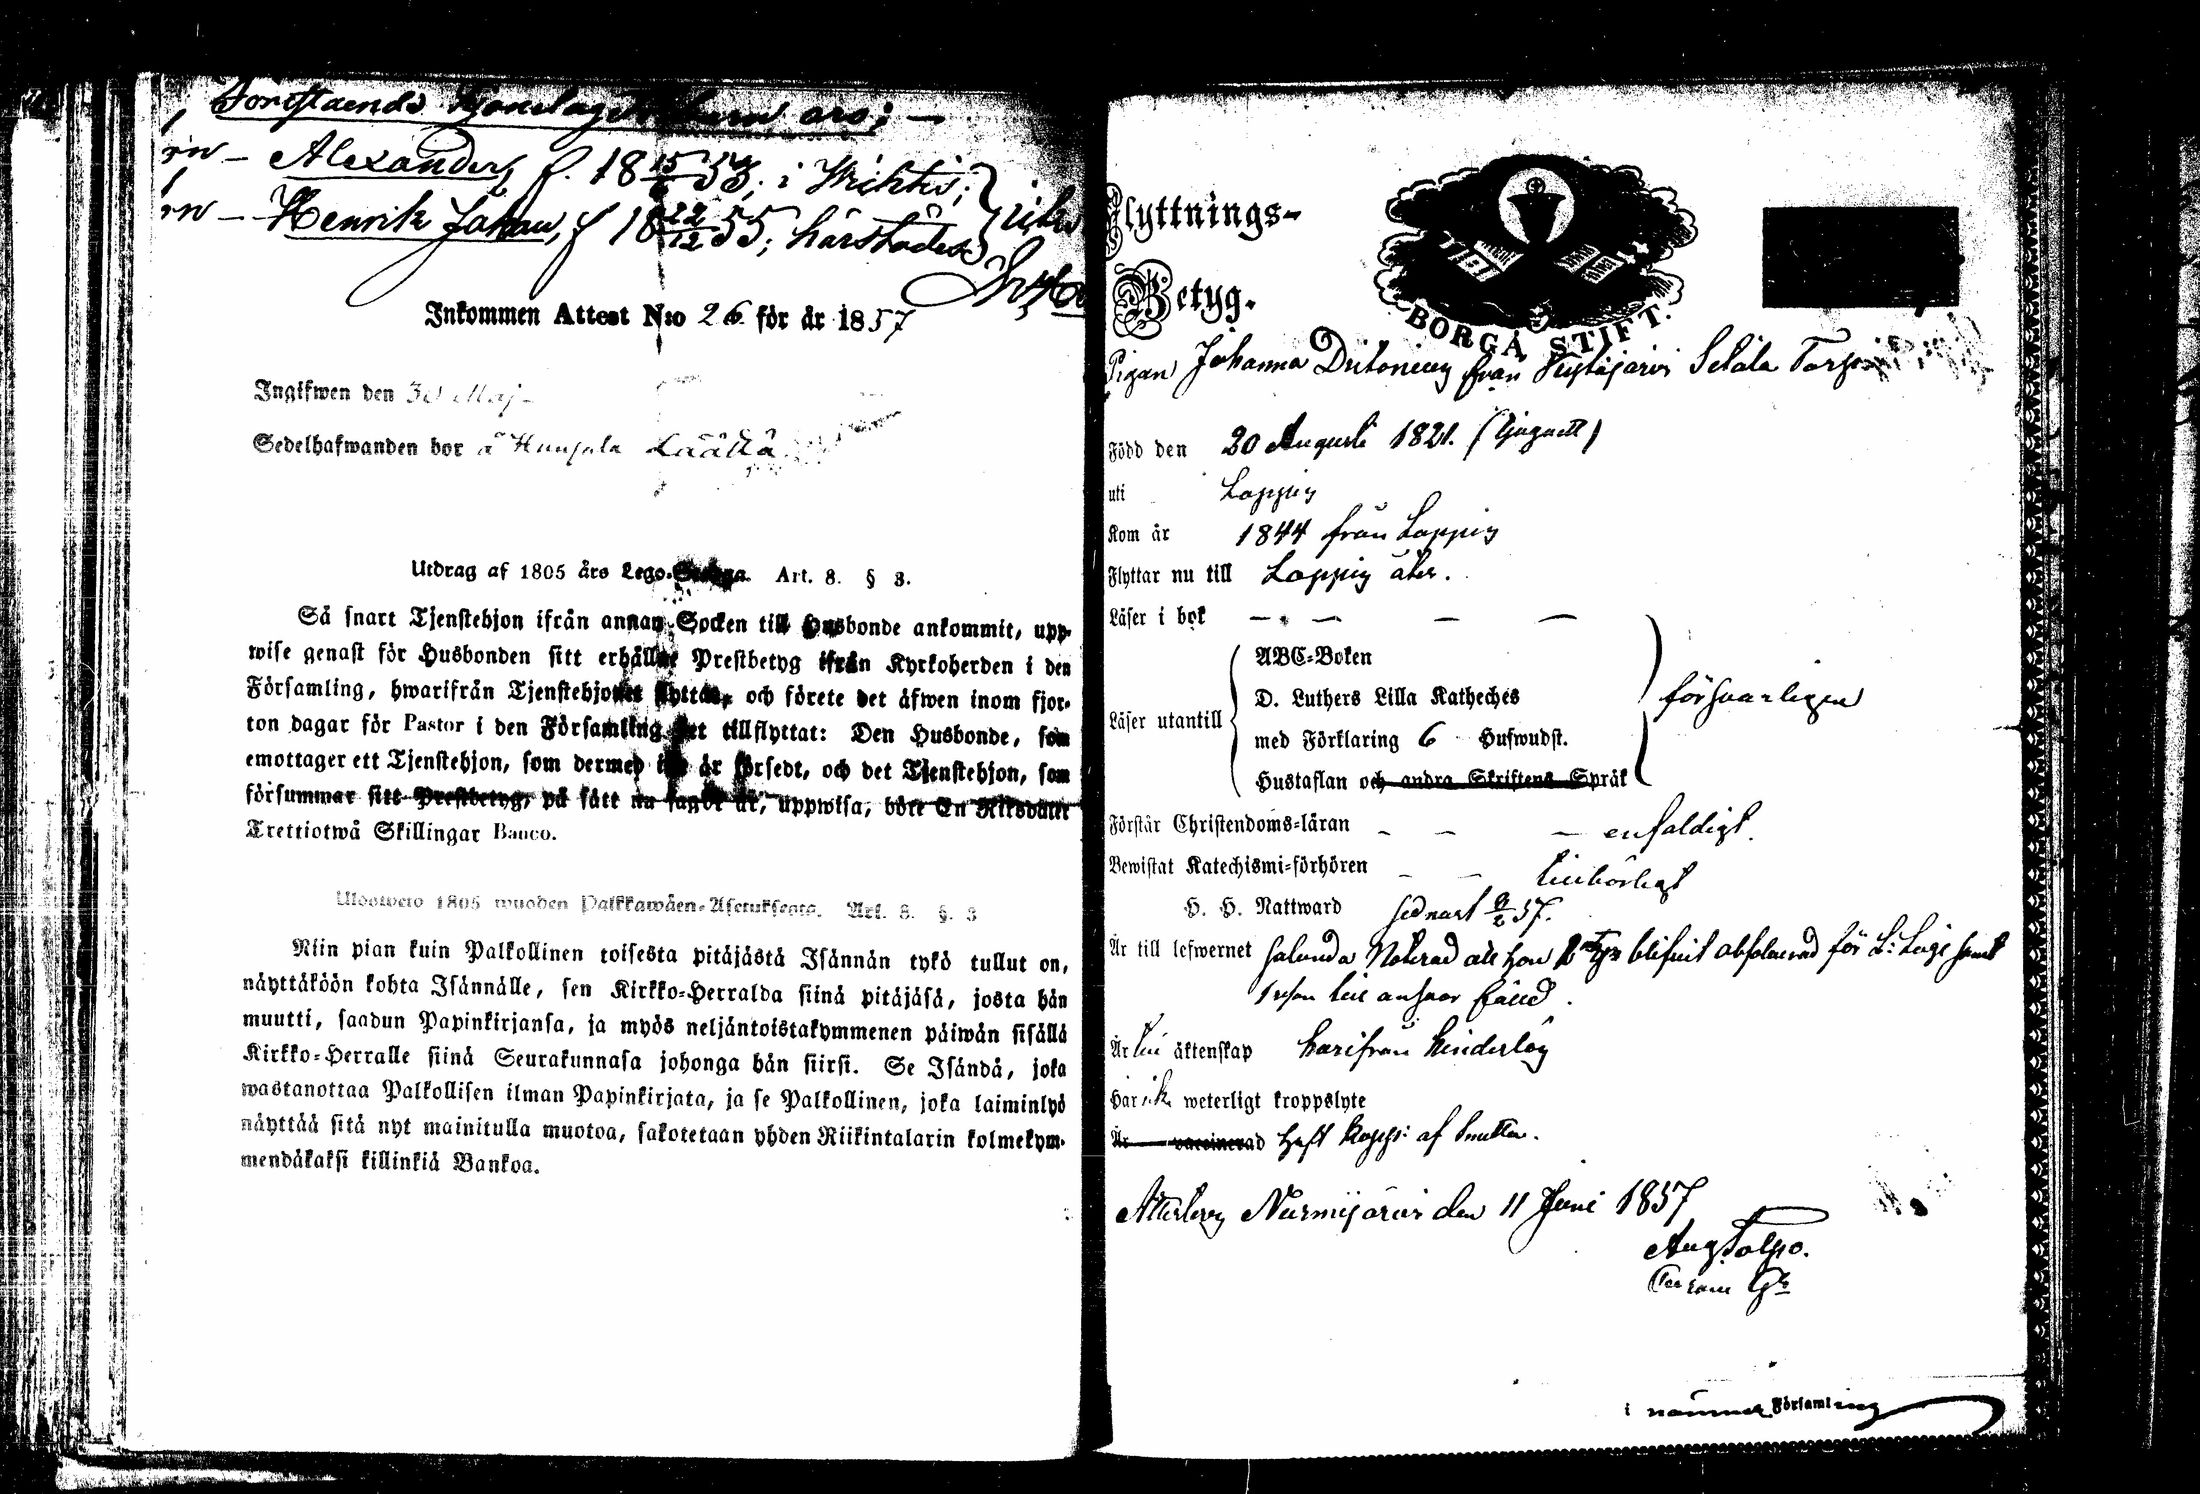 Forestående Hjonelagets barn äro; —
rn — Alexander, f. 18 15/6 53; i Wichtis;
rn — Henrik Johan, f 18 22/12 55; härstädes
Inkommen Attest N:o 26 för år 1857
Ingifwen den 30 Maj
Sedelhafwanden bor å Hunsala Läällä
Utdrag af 1805 års Lego-Stadga. Art. 8. § 3.
Så snart Tjenstehjon ifrån annan Socken till Husbonde ankommit, upp-
wise genast för Husbonden sitt erhållne Prestbetyg ifrån Kyrkoherden i den
Församling, hwarifrån Tjenstehjonet flyttat, och förete det äfwen inom fjor-
ton dagar för Pastor i den Församling det tillflyttat: Den Husbonde, som
emottager ett Tjenstehjon, som dermed icke är försedt, och det Tjenstehjon, som
försummar sitt Prestbetyg, på sätt nu sagdt är, uppwisa, böte En Riksdaler
Trettiotwå Skillingar Banco.
Ulosweto 1805 wuoden Palkkawäen-Asetuksesta. Art. 8. §. 3
Niin pian kuin Palkollinen toisesta pitäjästä Isännän tykö tullut on,
näyttäköön kohta Isännälle, sen Kirkko-Herralda siinä pitäjäsä, josta hän
muutti, saadun Papinkirjansa, ja myös neljäntoistakymmenen päiwän sisällä
Kirkko-Herralle siinä Seurakunnasa johonga hän siirsi. Se Isändä, joka
wastanottaa Palkollisen ilman Papinkirjata, ja se Palkollinen, joka laiminlyö
näyttää sitä nyt mainitulla muotoa, sakotetaan yhden Riikintalarin kolmekym-
mendäkaksi killinkiä Bankoa.
Flyttnings-
Betyg.
BORGÅ STIFT.
Pigan Johanna från Setälä Torp
Född den 20 Augusti 1821.
uti Loppis
Kom år 1844 från Loppis
Flyttar nu till Loppis åter.
Läser i bok — — — —
Läser utantill
ABC-Boken
D. Luthers Lilla Katheches
med Förklaring 6 Hufwudst.
Hustaflan och andra Skriftens Språk
försvarligen
Förstår Christendoms-läran — — — enfaldigt.
Bewistat Katechismi-förhören — — tillbörligt
H. H. Nattward sednast 8/2 57.
Är till lefwernet salunda Noterad att hon blifvit absolverad för L: Läge samt
Är till äktenskap härifrån hinderlös
Har ick weterligt kroppslyte
Är vaccinerad Haft kopp: af
Attesterar Nurmijärvi den 11 Juni 1857
Aug Tolpo.
i nämnde Församling